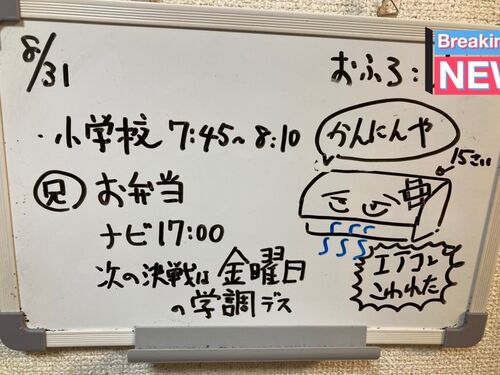 8/31
おふろ:
Breakin
NEW
・小学校 7:45〜8:10
かんにんや
15さい
兄 お弁当
ナビ17:00
次の決戦は金曜日
の学調デス
エアコン
こわれた